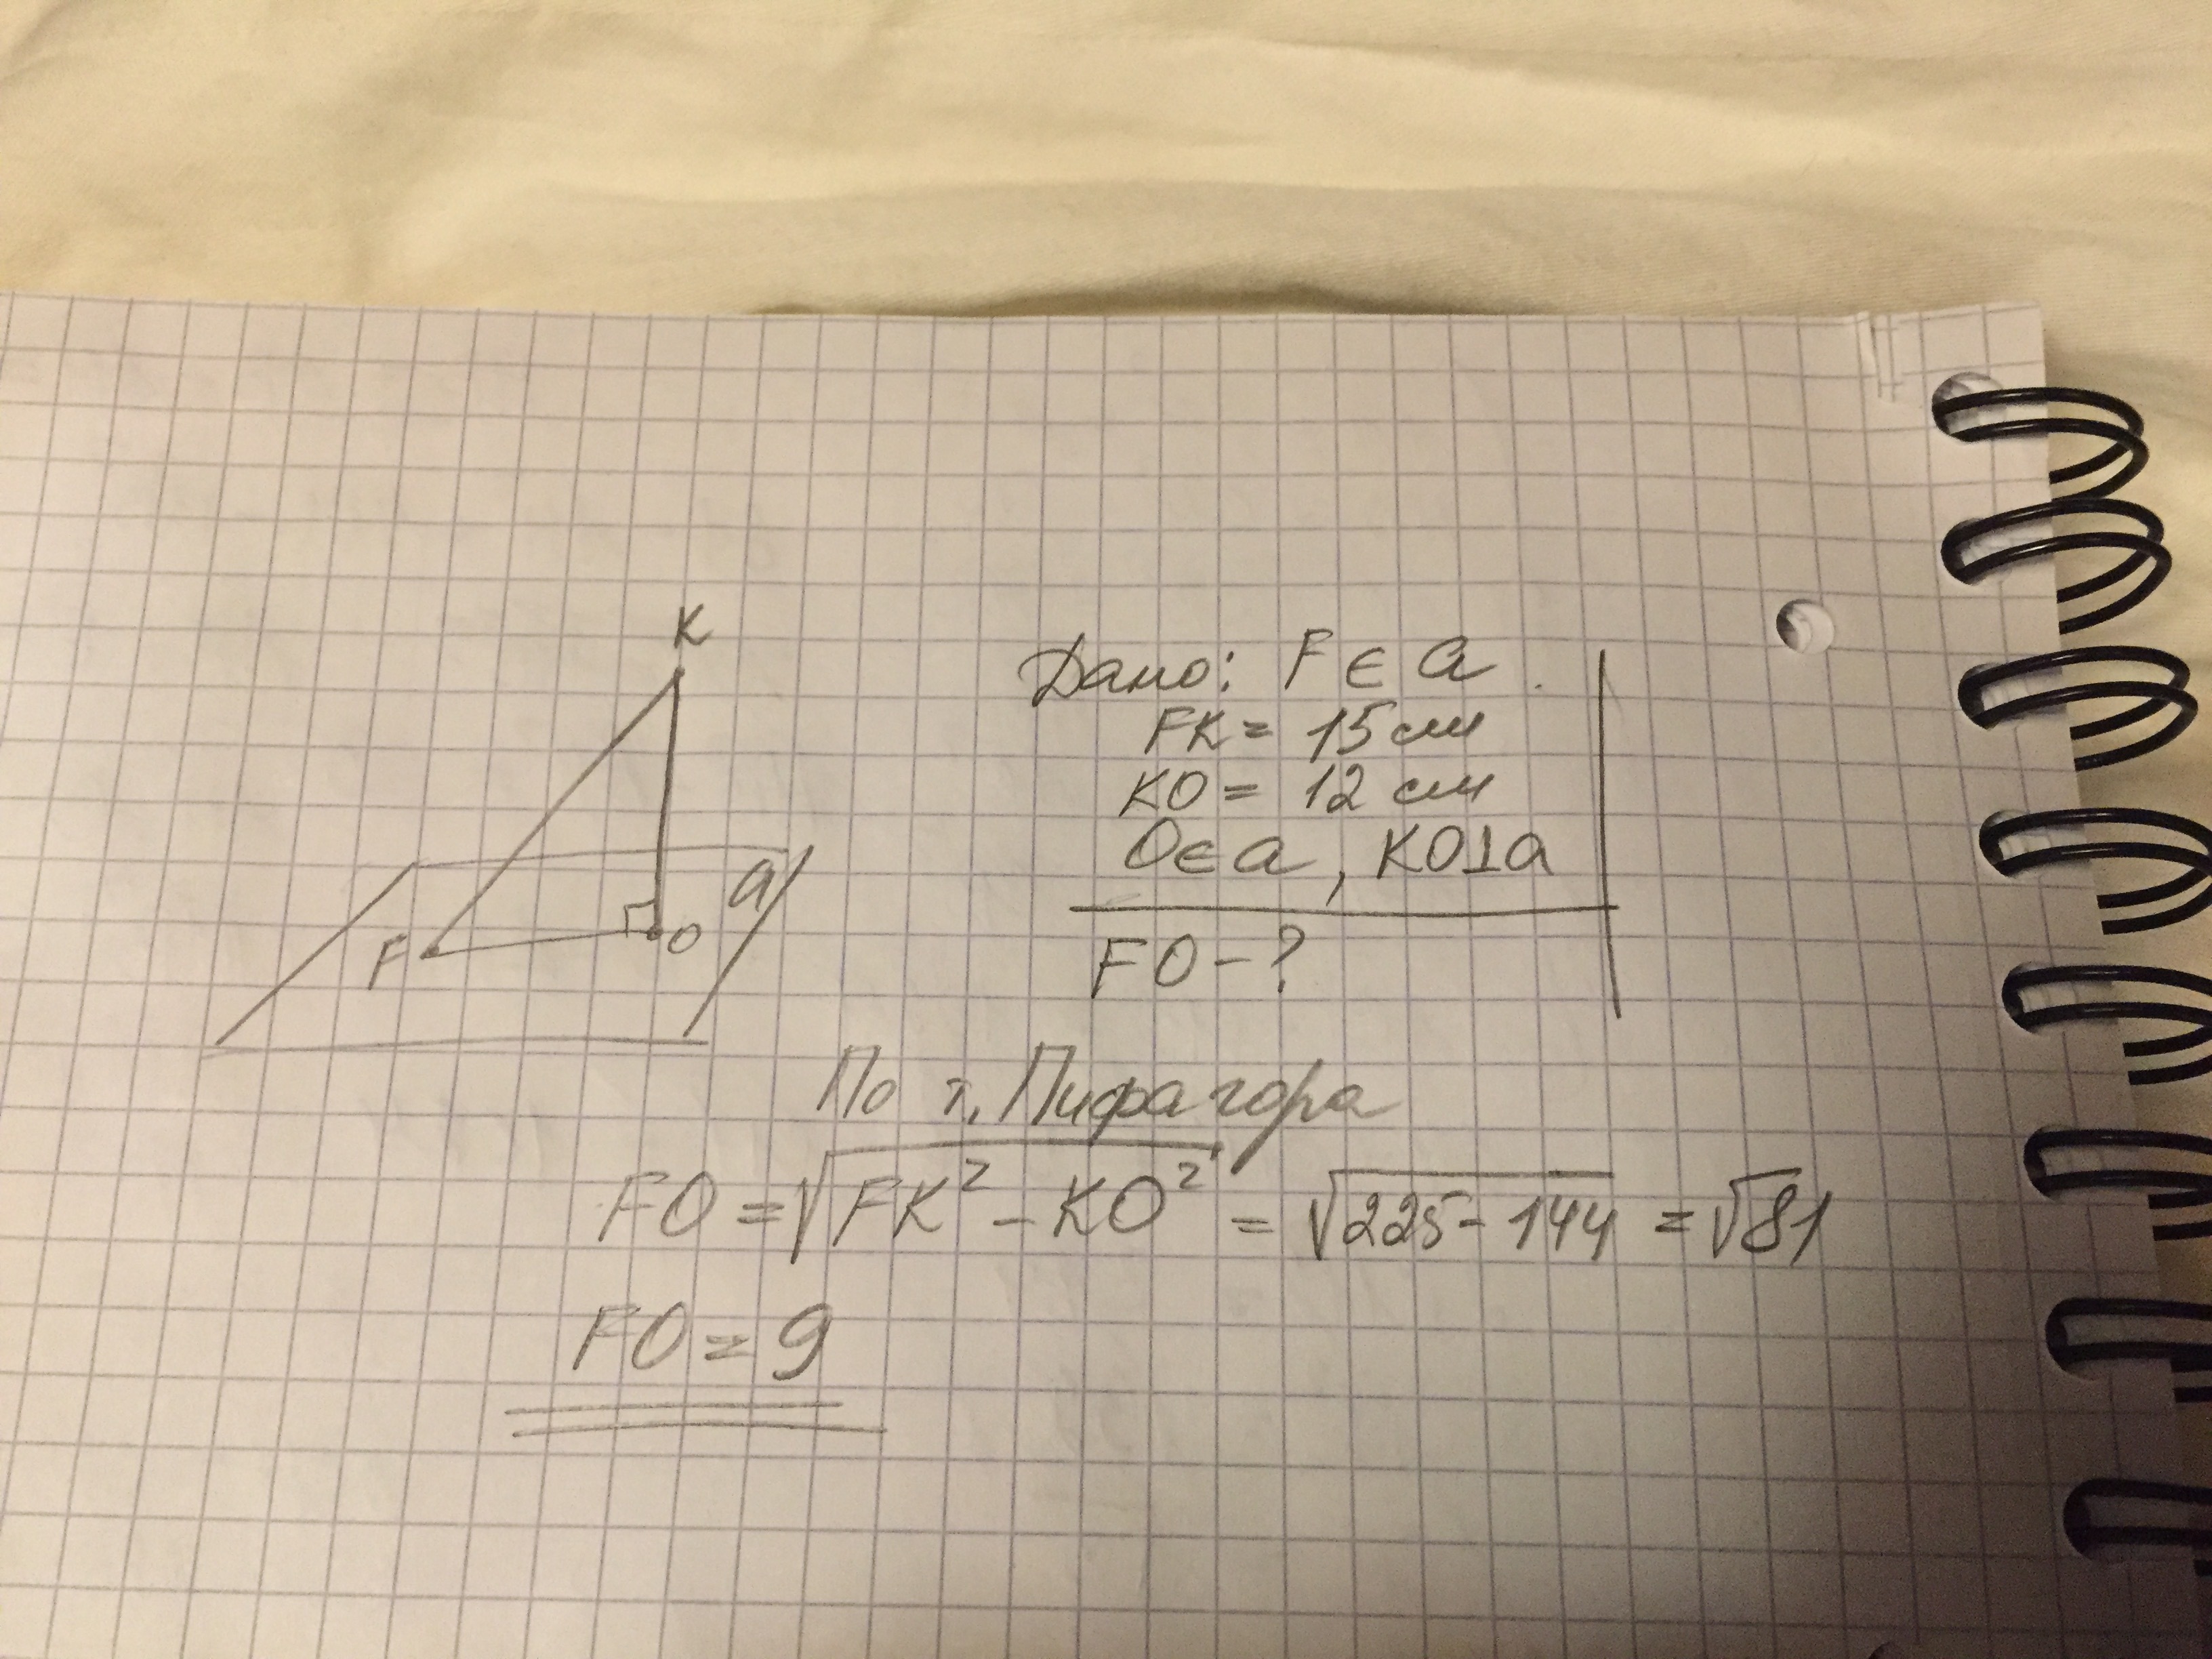 K
F
O
a
Дано: F ∈ a
FK = 15 см
KO = 12 см
O ∈ a, KO ⊥ a
FO - ?
По т. Пифагора
FO = √FK² - KO² = √225 - 144 = √81
FO = 9